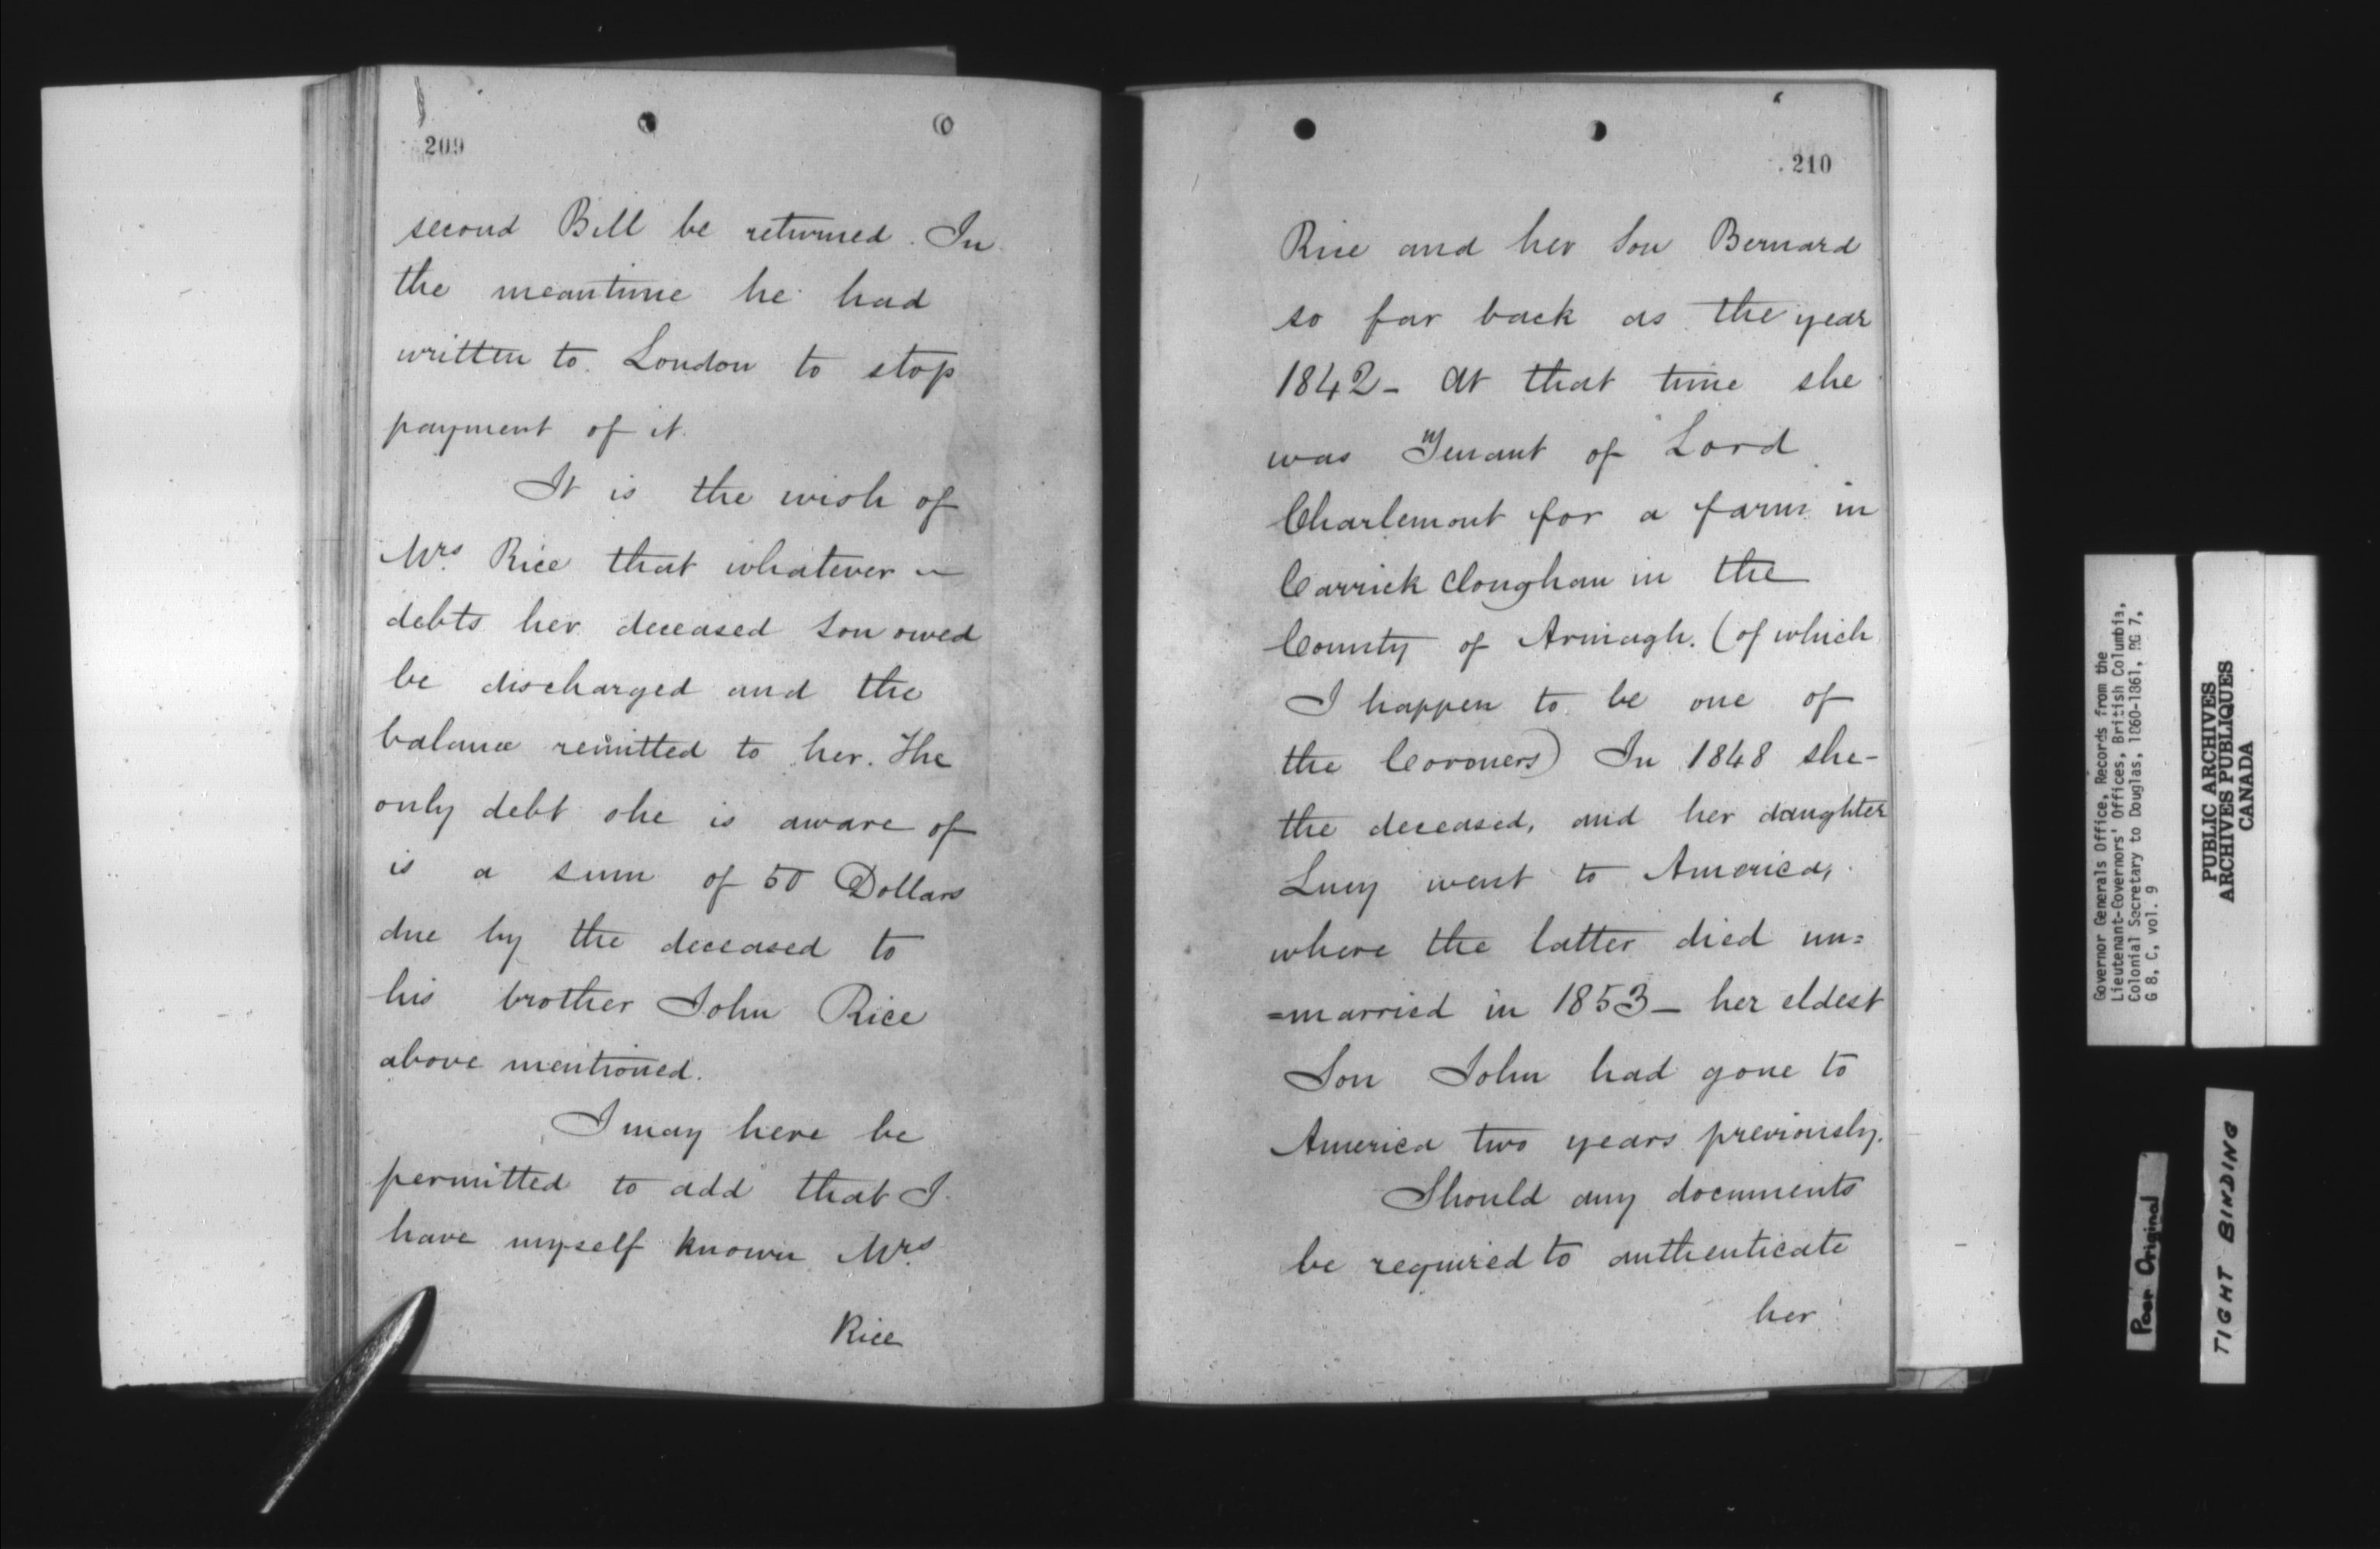 209
second Bill be returned. In
the meantime he had
written to London to stop
payment of it.
It is the wish of
Mrs. Rice that whatever
debts her deceased son owed
be discharged and the
balance remitted to her. The
only debt she is aware of
is a sum of 50 Dollars
due by the deceased to
his brother John Rice
above mentioned.
I may here be
permitted to add that I
have myself known Mrs.
Rice
210
Rice and her Son Bernard
so far back as the year
1842 - At that time she
was Tenant of Lord
Charlemont for a farm in
Carrick Cloughan in the
County of Armagh. (of which
I happen to be one of
the Coroners) In 1848 she -
the deceased, and her daughter
Lucy went to America,
where the latter died un=
=married in 1853 - her eldest
Son John had gone to
America two years previously.
Should any documents
be required to authenticate
her
Governor Generals Office, Records from the
Lieutenant-Governors' Offices, British Columbia,
Colonial Secretary to Douglas, 1860-1861, RG 7,
G 8, C, vol. 9
PUBLIC ARCHIVES
ARCHIVES PUBLIQUES
CANADA
Poor Original
TIGHT BINDING